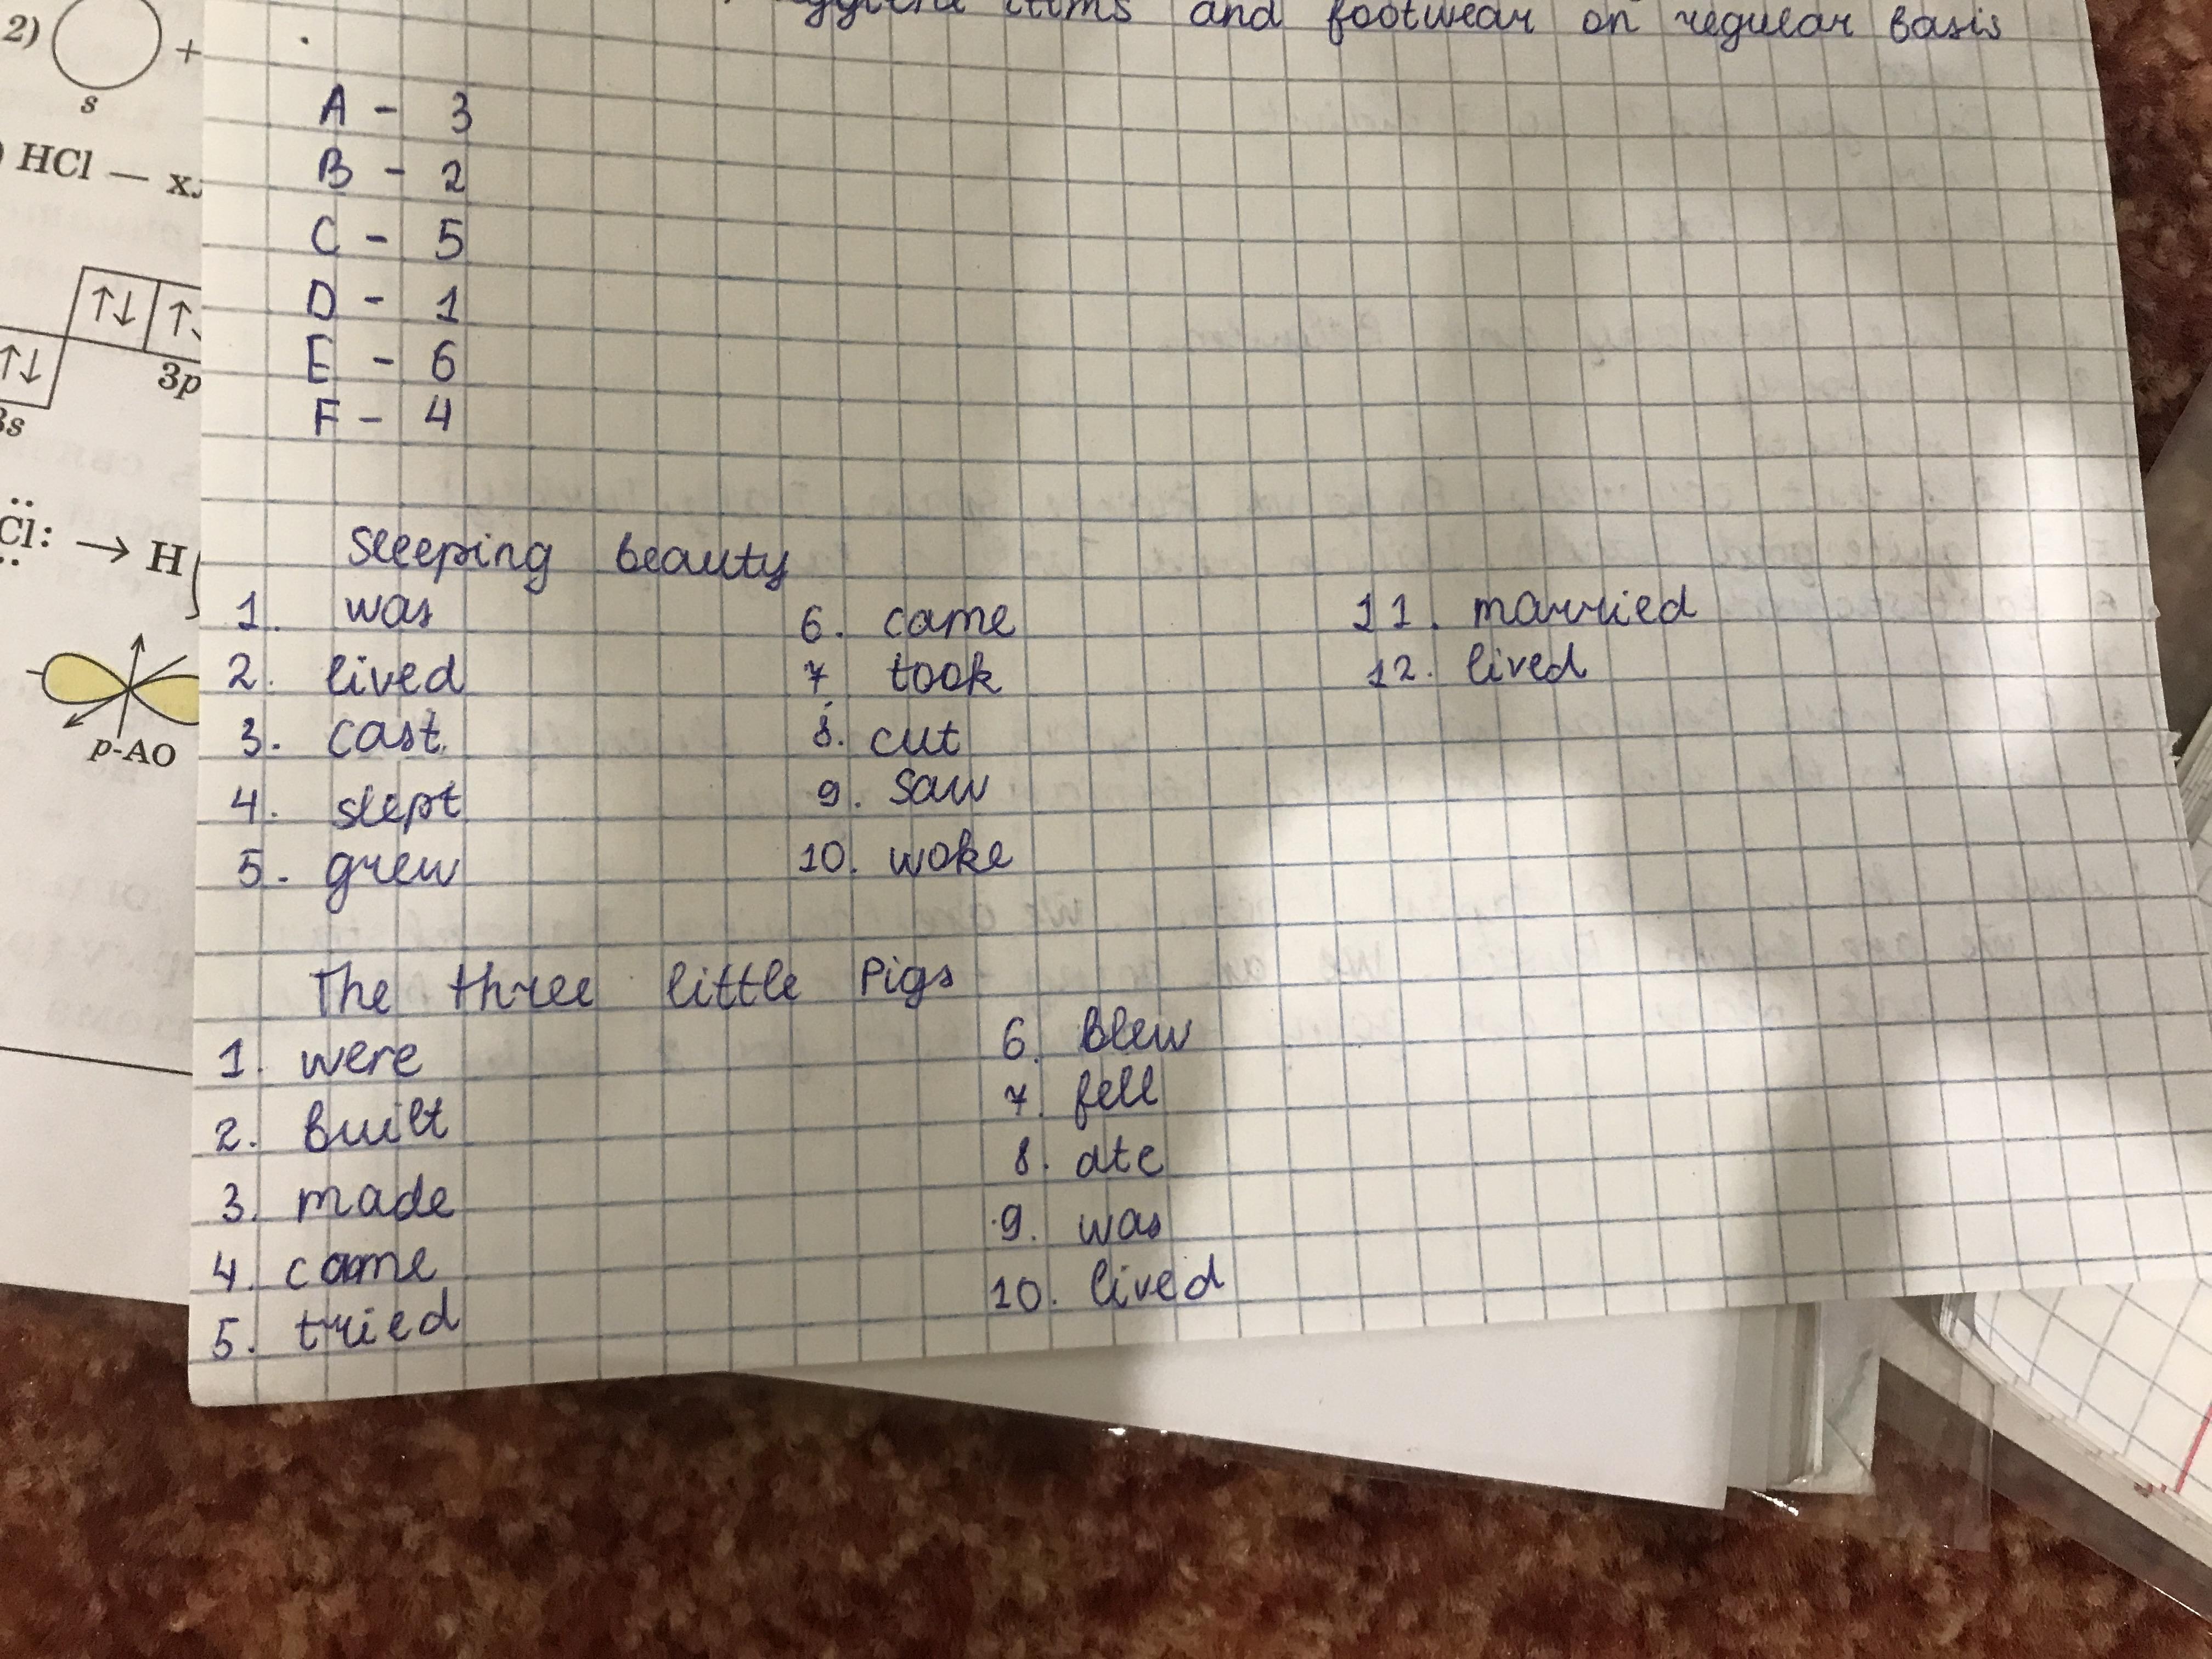 items and footwear on regular basis
A - 3
B - 2
C - 5
D - 1
E - 6
F - 4
Sleeping beauty
1. was
2. lived
3. cast
4. slept
5. grew
6. came
7. took
8. cut
9. saw
10. woke
11. married
12. lived
The three little Pigs
1. were
2. built
3. made
4. came
5. tried
6. Blew
7. fell
8. ate
9. was
10. lived
2) +
s
HCl —
↑↓ ↑
↑↓
3p
3s
Cl: → H
p-AO